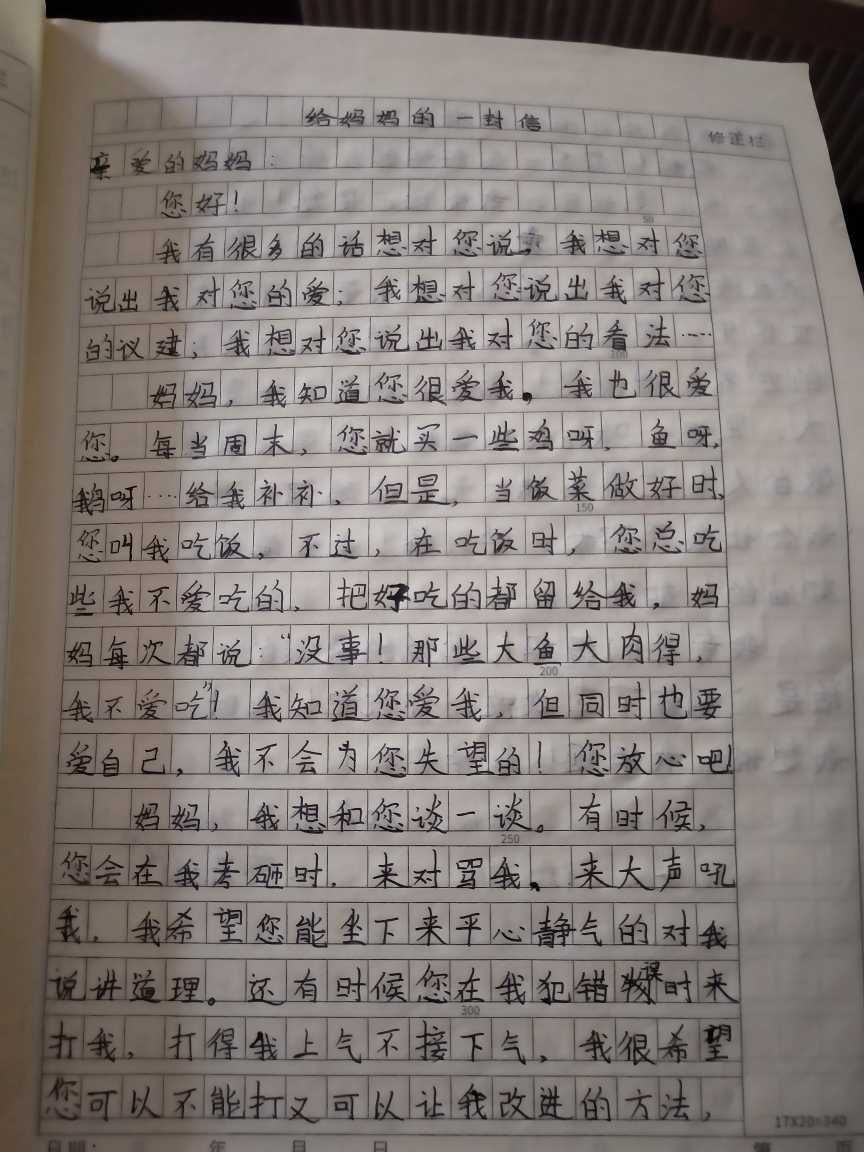 给妈妈的一封信
修正栏
亲爱的妈妈：
您好！
我有很多的话想对您说，我想对您
说出我对您的爱；我想对您说出我对您
的议建；我想对您说出我对您的看法……
妈妈，我知道您很爱我。我也很爱
您。每当周末，您就买一些鸡呀，鱼呀，
鹅呀……给我补补，但是，当饭菜做好时，
您叫我吃饭，不过，在吃饭时，您总吃
些我不爱吃的，把好吃的都留给我，妈
妈每次都说：“没事！那些大鱼大肉得，
我不爱吃”！我知道您爱我，但同时也要
爱自己，我不会为您失望的！您放心吧！
妈妈，我想和您谈一谈。有时候，
您会在我考砸时，来对骂我。来大声吼
我，我希望您能坐下来平心静气的对我
说讲道理。还有时候您在我犯错误时来
打我，打得我上气不接下气，我很希望
您可以不能打又可以让我改进的方法，
50
100
150
200
250
300
17X20=340
日期： 年 月 日 第 页